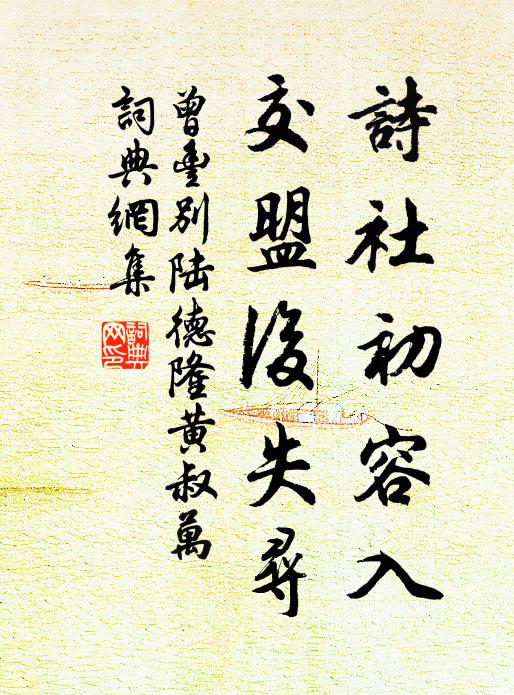 詩社初容入
交盟後失尋
曾豊別陸德隆黃叔萬
詞典網集
詞典網印